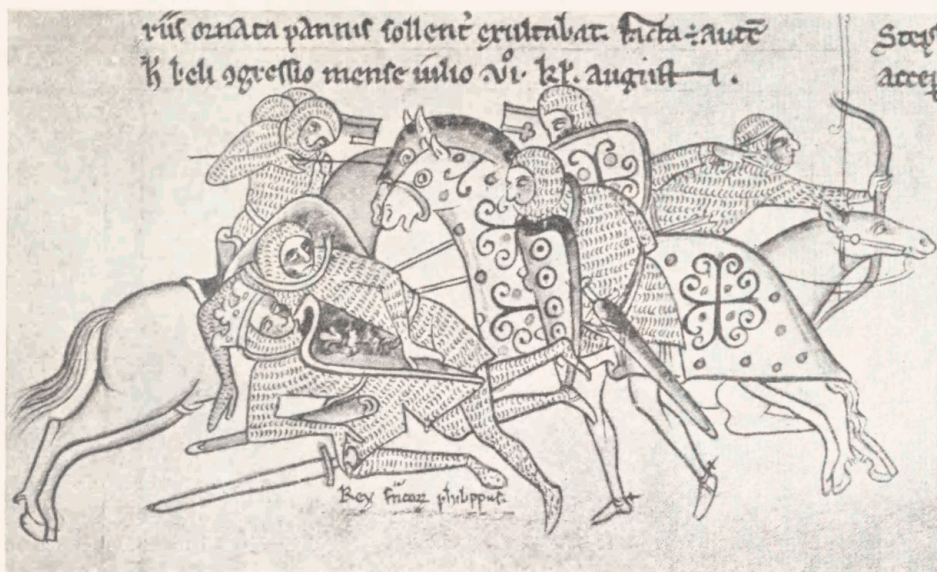 riis ornata pannis sollent̄ exultabat. facta ÷ autē
h̄ beli ꝯgressio mense iulio vi͏ͦ. kl̄. august i.
Steps
accep
Rex francoꝝ philippus.